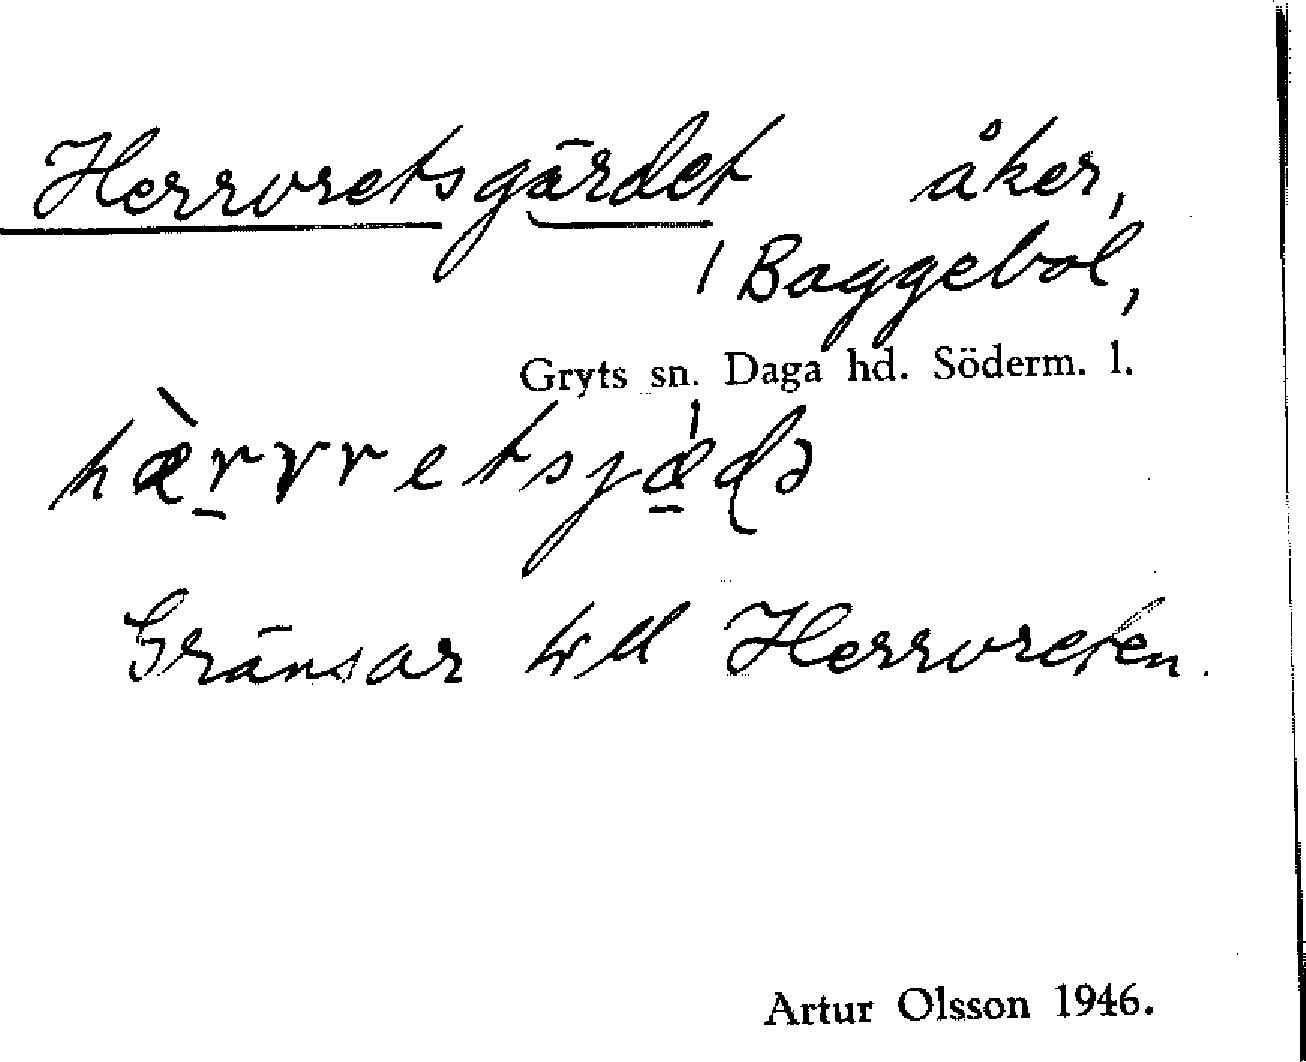 Herrvretsgärdet åker,
i Baggebol,
Gryts sn. Daga hd. Söderm. l.
hæ̀rvretsjæ̍də
Gränsar till Herrvreten.
Artur Olsson 1946.